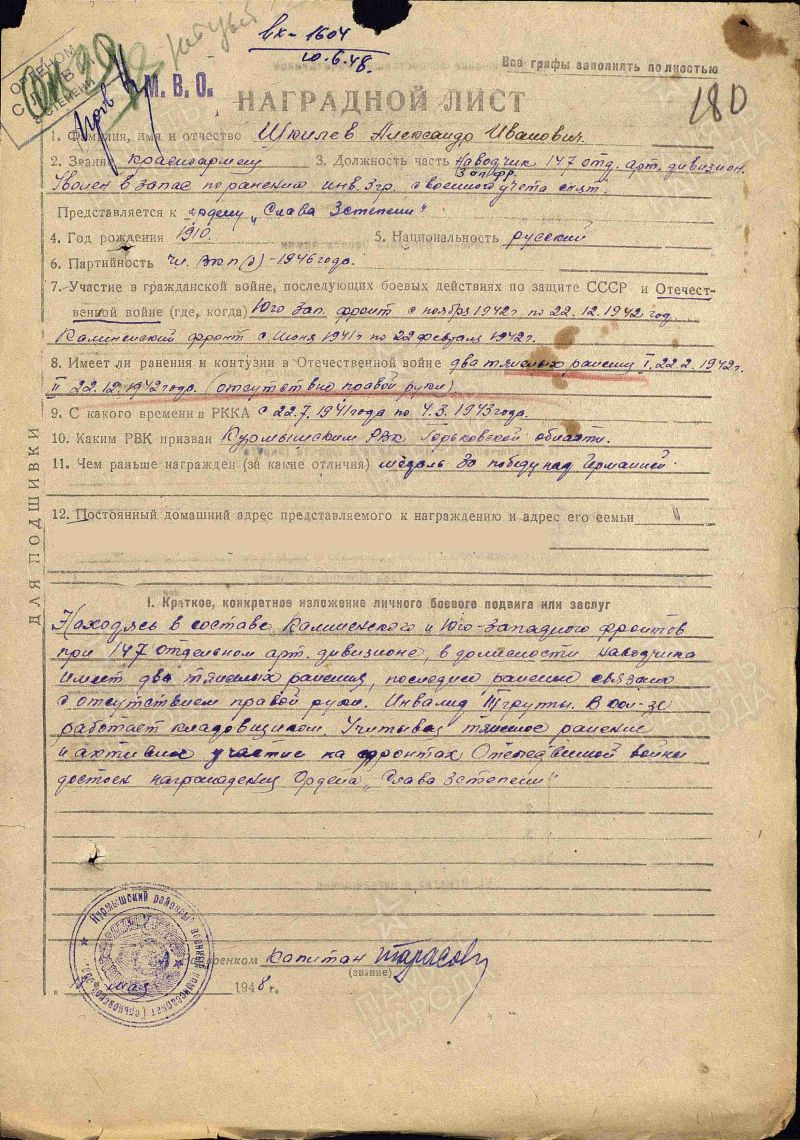 вх-1604
10.6.48.
Все графы заполнять полностью
ОРДЕНОМ
СЛАВЫ
3 СТЕПЕНИ
М. В. О.
180
НАГРАДНОЙ ЛИСТ
1. Фамилия, имя и отчество Шкилев Александр Иванович.
2. Звание красноармеец 3. Должность часть Наводчик 147 отд. арт. дивизион.
Уволен в запас по ранению инв. 3 гр. с военного учета снят.
Представляется к ордену „Слава 3 степени"
4. Год рождения 1910. 5. Национальность русский
6. Партийность чл. ВКП(б) - 1946 года.
7. Участие в гражданской войне, последующих боевых действиях по защите СССР и Отечест-
венной войне (где, когда) Юго Зап. фронт с ноября 1942г по 22.12.1942 год.
Калининский фронт с Июня 1941г по 22 февраля 1942г.
8. Имеет ли ранения и контузии в Отечественной войне два тяжелых ранения I. 22.2.1942г.
II 22.12.1942 года. (отсутствие правой руки).
9. С какого времени в РККА с 22.7.1941 года по 4.3.1943 года.
10. Каким РВК призван Курмышским РВК Горьковской области.
11. Чем раньше награжден (за какие отличия) медаль За победу над Германией.
12. Постоянный домашний адрес представляемого к награждению и адрес его семьи
I. Краткое, конкретное изложение личного боевого подвига или заслуг
Находясь в составе Калининского и Юго-Западного фронтов
при 147 отдельном арт. дивизионе, в должности наводчика
имеет два тяжелых ранения, последнее ранение связано
с отсутствием правой руки. Инвалид III группы. В кол-зе
работает кладовщиком. Учитывая тяжелое ранение
и активное участие на фронтах Отечественной войны
достоин награждения Ордена „Слава 3 степени"
капитан Тарасов
(звание)
мая 1948 г.
Курмышский районный военный комиссариат Горьковской обл.
ДЛЯ ПОДШИВКИ
ПАМЯТЬ
НАРОДА